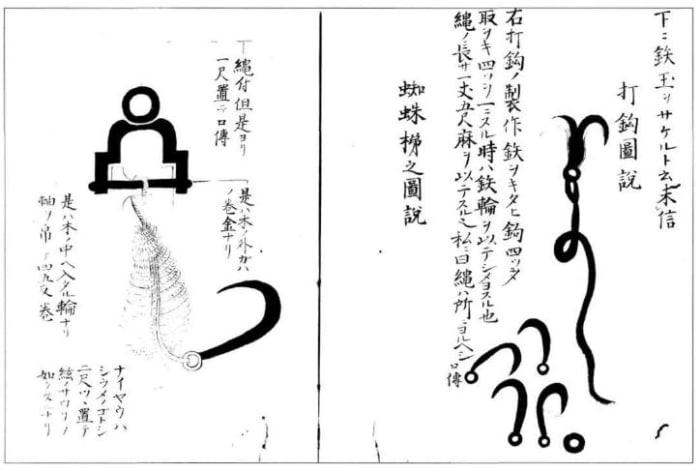 下ニ鉄玉ヲサケルト云未信
打鈎圖説
右打鈎ノ製作鉄ヲキタヒ鈎四ツヲ
取ヲキ四ツヲ一ニスル時ハ鉄輪ヲ以テシメヨスル也
縄ノ長サ一丈五尺麻ヲ以テスル之私ニ曰縄ハ所ニヨルヘシ
口傳
蜘蛛梯之圖説
縄付但是ヨリ
一尺置テ口傳
是ハ木ノ外ガハ
ノ巻金ナリ
是ハ木ノ中ヘ入タル輪ナリ
ナイヤウハ
シウメノゴトシ
二尺ツヽ置テ